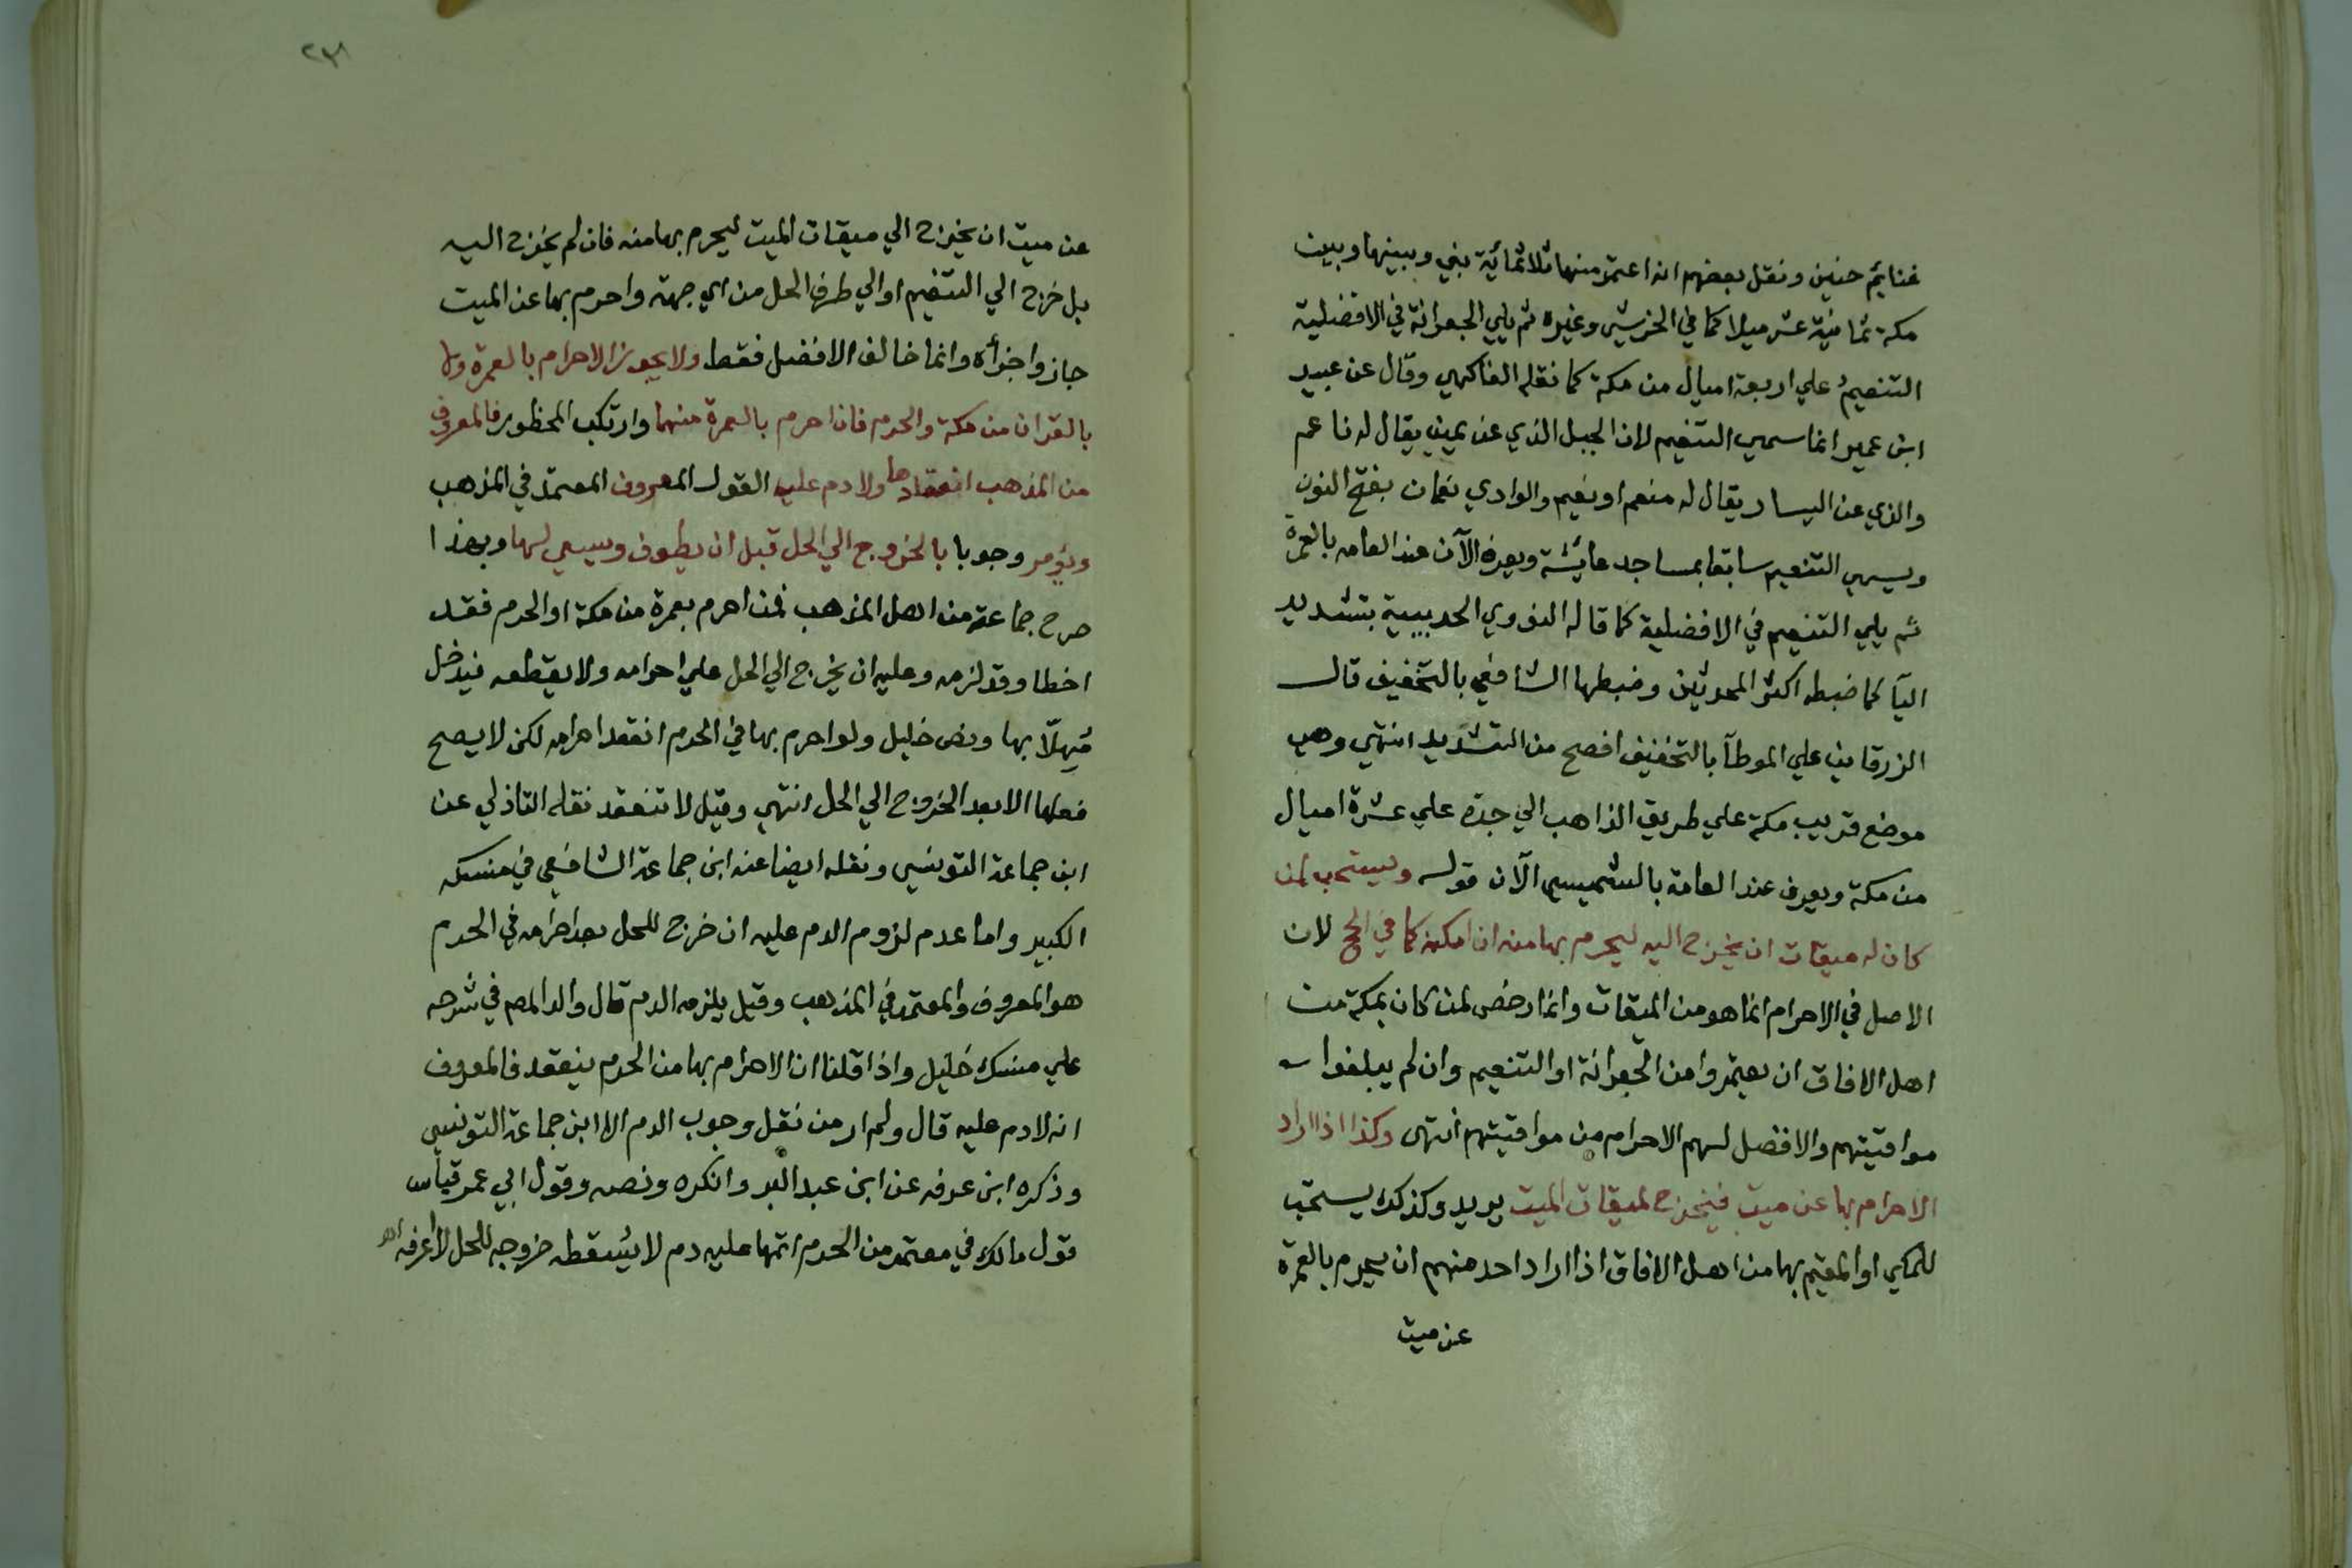 غنايم حنين ونقل بعضهم انه اعتمر منها ثلاثمائية نبي وبينها وبين
مكة ثمانية عشر ميلا كما في الخرشي وغيره ثم يلي الجعرانة في الافضلية
التنعيم علي اربعة اميال من مكة كما نقله الفاكهي وقال عن عبيد
ابن عمير انما سمي التنعيم لان الجبل الذي عن يمينه يقال له ناعم
والذي عن اليسار يقال له منعم او نعيم والوادي نعمان بفتح النون
ويسمي التنعيم سابقا بمساجد عائشة ويعرف الآن عند العامه بالعمرة
ثم يلي التنعيم في الافضلية كما قاله النووي الحديبية بتشديد
اليآ كما ضبطه اكثر المحدثين وضبطها الشافعي بالتخفيف قال
الزرقاني علي الموطآ بالتخفيف افصح من التشديد انتهي وهي
موضع قريب مكة علي طريق الذاهب الي جدة علي عشرة اميال
من مكة ويعرف عند العامة بالشميسي الآن قوله ويستحب لمن
كان له ميقات ان يخرج اليه ليحرم بها منه ان امكنه كما في الحج لان
الاصل في الاحرام انما هو من الميقات وانما رخص لمن كان بمكة من
اهل الافاق ان يعتمروا من الجعرانة او التنعيم وان لم يبلغوا
مواقيتهم والافضل لهم الاحرام من مواقيتهم انتهى وكذا اذا اراد
الاحرام بها عن ميت فيخرج لميقات الميت يريد وكذلك يستحب
للمكي او المقيم بها من اهل الافاق اذا اراد احد منهم ان يحرم بالعمرة
عن ميت
٢٣١
عن ميت ان يخرج الي ميقات الميت ليحرم بها منه فان لم يخرج اليه
بل خرج الي التنعيم او الي طرف الحل من اي جهة واحرم بها عن الميت
جاز واجزأه وانما خالف الافضل فقط ولا يجوز الاحرام بالعمرة ولا
بالقران من مكة والحرم فان احرم بالعمرة منهما وارتكب المحظور فالمعروف
من المذهب انعقادها ولا دم عليه القول المعروف المعتمد في المذهب
ويؤمر وجوبا بالخروج الي الحل قبل ان يطوف ويسعي لها وبهذا
صرح جماعة من اهل المذهب فمن احرم بعمرة من مكة او الحرم فقد
اخطا وقد لزمه وعليه ان يخرج الي الحل علي احرامه ولا يقطعه فيدخل
مُهلّا بها ونص خليل ولو احرم بها في الحرم انعقد احرامه لكن لا يصح
فعلها الا بعد الخروج الي الحل انتهي وقيل لا تنعقد نقله التاذلي عن
ابن جماعة التونسي ونقله ايضا عنه ابن جماعة الشافعي في منسكه
الكبير واما عدم لزوم الدم عليه ان خرج للحل بعد احرامه في الحرم
هو المعروف والمعتمد في المذهب وقيل يلزمه الدم قال والد المص في شرحه
علي منسك خليل واذا قلنا ان الاحرام بها من الحرم ينعقد فالمعروف
انه لا دم عليه قال ولم ار من نقل وجوب الدم الا ابن جماعة التونسي
وذكره ابن عرفه عن ابن عبد البر وانكره ونصه وقول ابي عمر قياس
قول مالك في معتمر من الحرم اتمها عليه دم لا يُسقطه خروجه للحل لا أعرفه اهـ